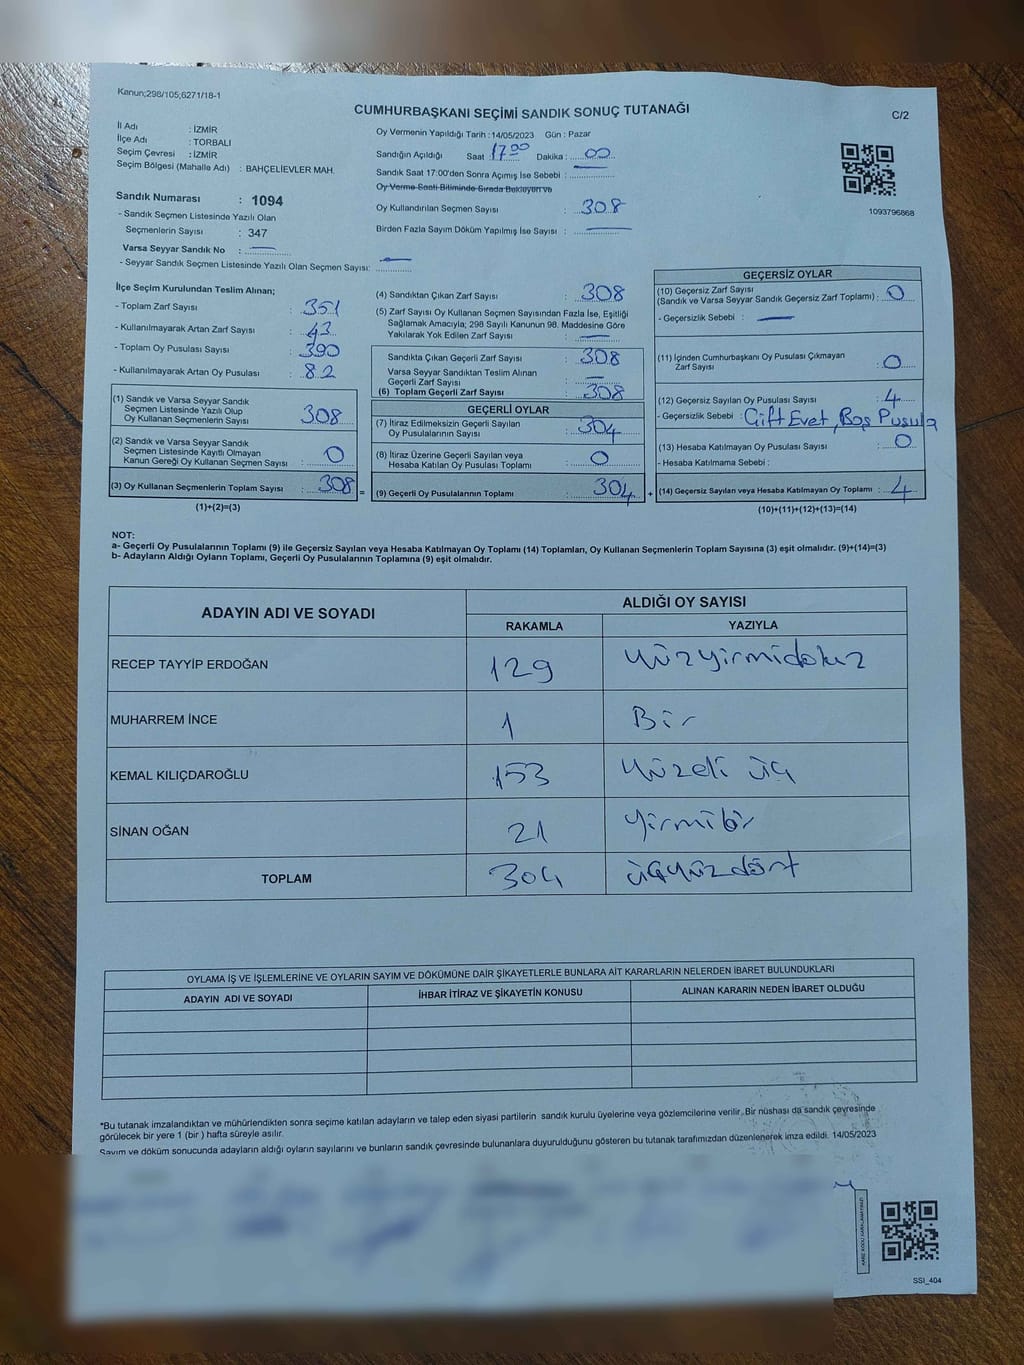 Kanun;298/105;6271/18-1
CUMHURBAŞKANI SEÇİMİ SANDIK SONUÇ TUTANAĞI
C/2
İl Adı : İZMİR
İlçe Adı : TORBALI
Seçim Çevresi : İZMİR
Seçim Bölgesi (Mahalle Adı) : BAHÇELİEVLER MAH.
Sandık Numarası : 1094
- Sandık Seçmen Listesinde Yazılı Olan
Seçmenlerin Sayısı : 347
Varsa Seyyar Sandık No :
- Seyyar Sandık Seçmen Listesinde Yazılı Olan Seçmen Sayısı:
Oy Vermenin Yapıldığı Tarih : 14/05/2023 Gün : Pazar
Sandığın Açıldığı Saat 17:00 Dakika : 00
Sandık Saat 17:00'den Sonra Açımış İse Sebebi :
Oy Verme Saati Bitiminde Sırada Bekleyen ve
Oy Kullandırılan Seçmen Sayısı : 308
Birden Fazla Sayım Döküm Yapılmış İse Sayısı :
1093796868
İlçe Seçim Kurulundan Teslim Alınan;
- Toplam Zarf Sayısı : 351
- Kullanılmayarak Artan Zarf Sayısı : 43
- Toplam Oy Pusulası Sayısı : 390
- Kullanılmayarak Artan Oy Pusulası : 82
(1) Sandık ve Varsa Seyyar Sandık
Seçmen Listesinde Yazılı Olup
Oy Kullanan Seçmenlerin Sayısı : 308
(2) Sandık ve Varsa Seyyar Sandık
Seçmen Listesinde Kayıtlı Olmayan
Kanun Gereği Oy Kullanan Seçmen Sayısı : 0
(3) Oy Kullanan Seçmenlerin Toplam Sayısı : 308 =
(1)+(2)=(3)
(4) Sandıktan Çıkan Zarf Sayısı : 308
(5) Zarf Sayısı Oy Kullanan Seçmen Sayısından Fazla İse, Eşitliği
Sağlamak Amacıyla; 298 Sayılı Kanunun 98. Maddesine Göre
Yakılarak Yok Edilen Zarf Sayısı :
Sandıkta Çıkan Geçerli Zarf Sayısı : 308
Varsa Seyyar Sandıktan Teslim Alınan
Geçerli Zarf Sayısı :
(6) Toplam Geçerli Zarf Sayısı : 308
GEÇERLİ OYLAR
(7) İtiraz Edilmeksizin Geçerli Sayılan
Oy Pusulalarının Sayısı : 304
(8) İtiraz Üzerine Geçerli Sayılan veya
Hesaba Katılan Oy Pusulası Toplamı : 0
(9) Geçerli Oy Pusulalarının Toplamı : 304 +
GEÇERSİZ OYLAR
(10) Geçersiz Zarf Sayısı
(Sandık ve Varsa Seyyar Sandık Geçersiz Zarf Toplamı) : 0
- Geçersizlik Sebebi :
(11) İçinden Cumhurbaşkanı Oy Pusulası Çıkmayan
Zarf Sayısı : 0
(12) Geçersiz Sayılan Oy Pusulası Sayısı : 4
- Geçersizlik Sebebi : Çift Evet, Boş Pusula
(13) Hesaba Katılmayan Oy Pusulası Sayısı : 0
- Hesaba Katılmama Sebebi :
(14) Geçersiz Sayılan veya Hesaba Katılmayan Oy Toplamı : 4
(10)+(11)+(12)+(13)=(14)
NOT:
a- Geçerli Oy Pusulalarının Toplamı (9) ile Geçersiz Sayılan veya Hesaba Katılmayan Oy Toplamı (14) Toplamları, Oy Kullanan Seçmenlerin Toplam Sayısına (3) eşit olmalıdır. (9)+(14)=(3)
b- Adayların Aldığı Oyların Toplamı, Geçerli Oy Pusulalarının Toplamına (9) eşit olmalıdır.
ADAYIN ADI VE SOYADI
ALDIĞI OY SAYISI
RAKAMLA YAZIYLA
RECEP TAYYİP ERDOĞAN 129 Yüzyirmidokuz
MUHARREM İNCE 1 Bir
KEMAL KILIÇDAROĞLU 153 Yüzelli üç
SİNAN OĞAN 21 Yirmibir
TOPLAM 304 üçyüzdört
OYLAMA İŞ VE İŞLEMLERİNE VE OYLARIN SAYIM VE DÖKÜMÜNE DAİR ŞİKAYETLERLE BUNLARA AİT KARARLARIN NELERDEN İBARET BULUNDUKLARI
ADAYIN ADI VE SOYADI İHBAR İTİRAZ VE ŞİKAYETİN KONUSU ALINAN KARARIN NEDEN İBARET OLDUĞU
*Bu tutanak imzalandıktan ve mühürlendikten sonra seçime katılan adayların ve talep eden siyasi partilerin sandık kurulu üyelerine veya gözlemcilerine verilir. Bir nüshası da sandık çevresinde
görülecek bir yere 1 (bir ) hafta süreyle asılır.
Sayım ve döküm sonucunda adayların aldığı oyların sayılarını ve bunların sandık çevresinde bulunanlara duyurulduğunu gösteren bu tutanak tarafımızdan düzenlenerek imza edildi. 14/05/2023
SSI_404